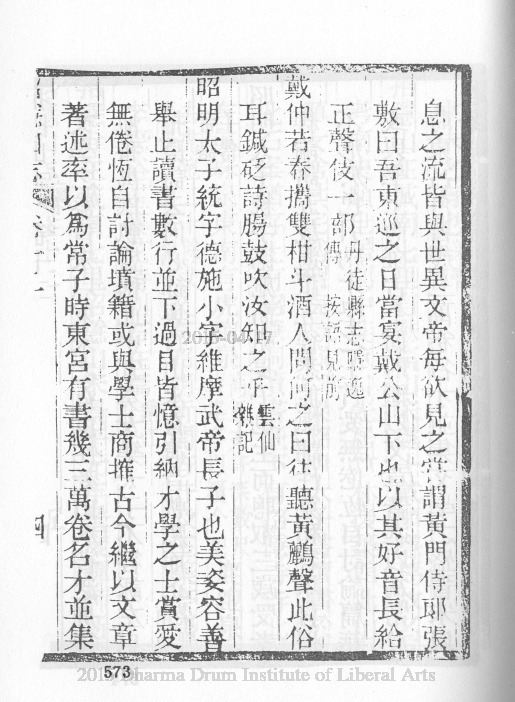 息之流皆與世異文帝每欲見之嘗謂黃門侍郎張
敷曰吾東巡之日當宴戴公山下也以其好音長給
正聲伎一部丹徒縣志隱逸傳 按語見前
戴仲若春攜雙柑斗酒人問何之曰往聽黃鸝聲此俗
耳鍼砭詩腸鼓吹汝知之乎雲仙雜記
昭明太子統字德施小字維摩武帝長子也美姿容善
舉止讀書數行並下過目皆憶引納才學之士賞愛
無倦恆自討論墳籍或與學士商搉古今繼以文章
著述率以為常于時東宮有書幾三萬卷名才並集
卷十
四
573
Dharma Drum Institute of Liberal Arts